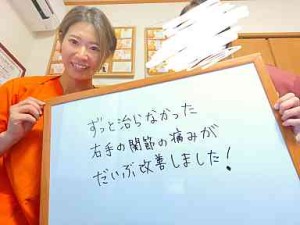 ずっと治らなかった
右手の関節の痛みが
だいぶ改善しました！